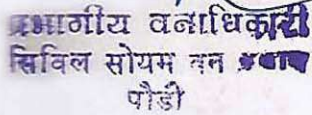 प्रभागीय वनाधिकारी
सिविल सोयम वन प्रभाग
पौडी